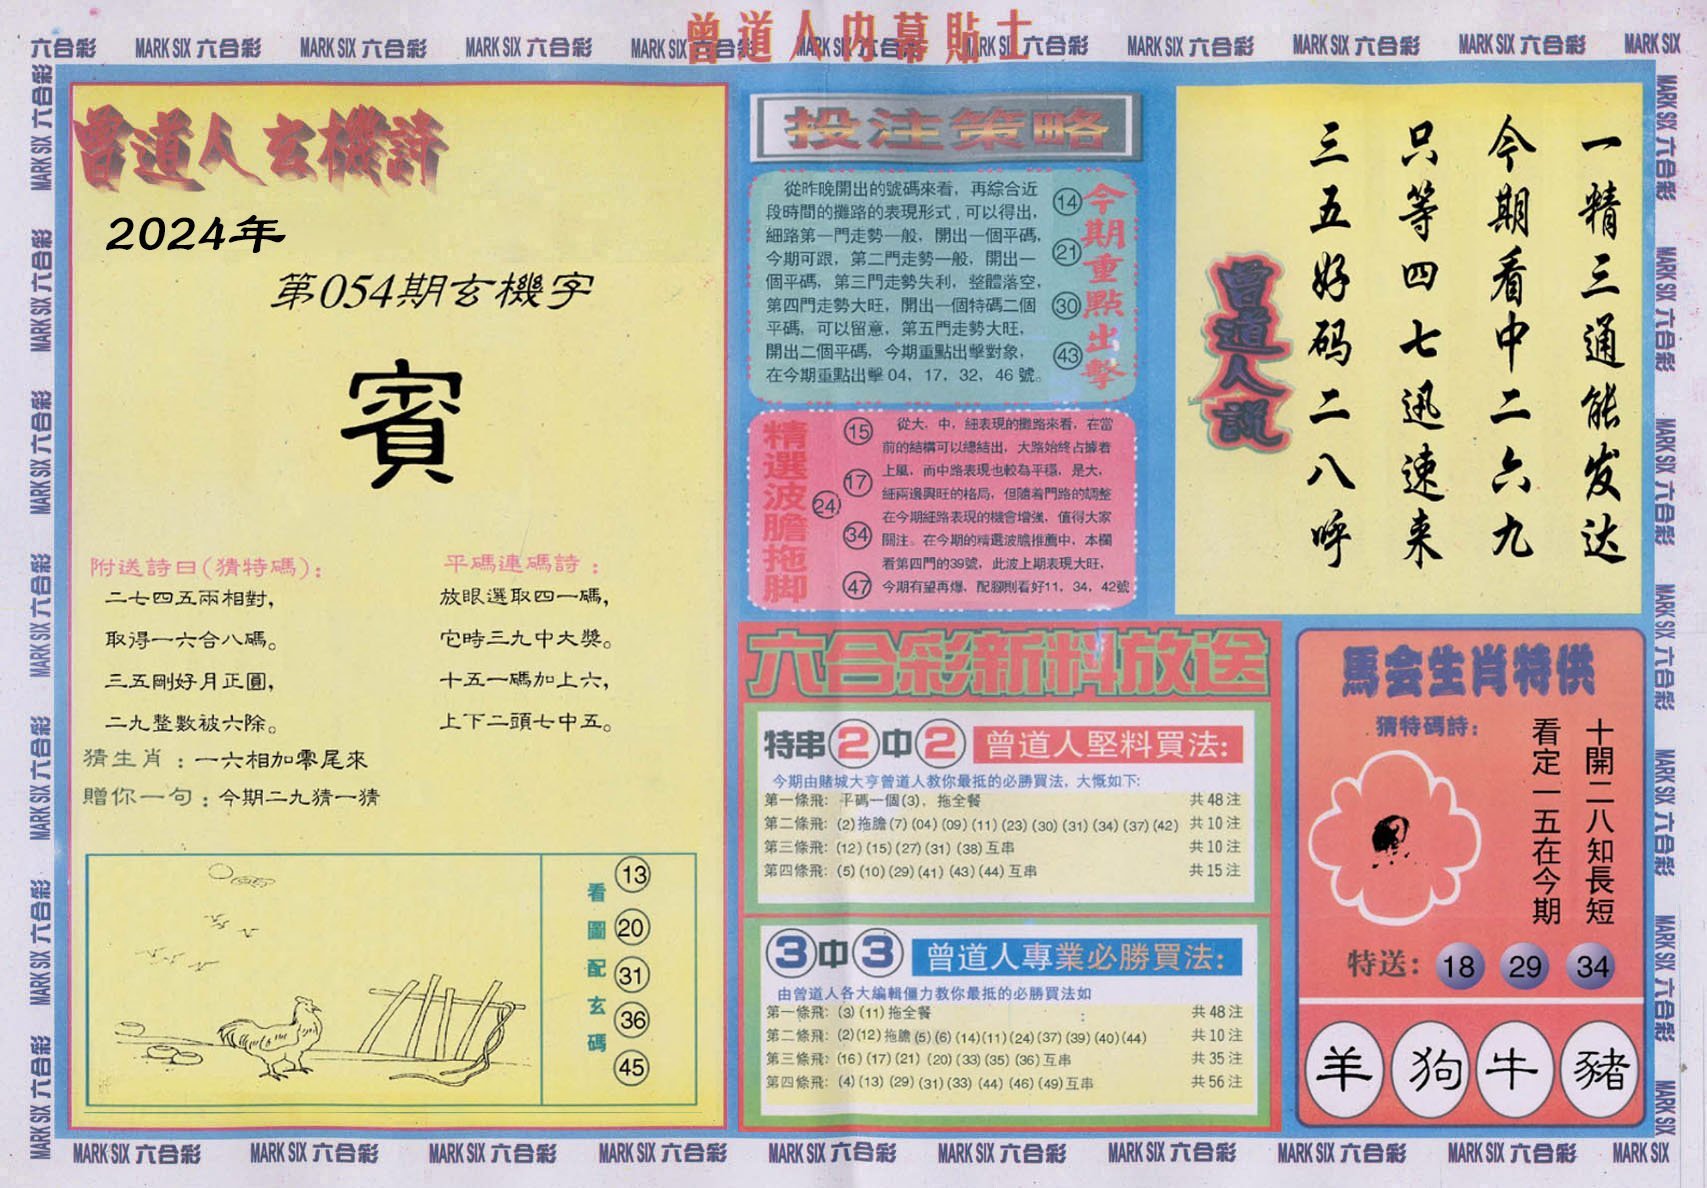 曾道人内幕貼士
六合彩 MARK SIX 六合彩 MARK SIX 六合彩 MARK SIX 六合彩 MARK SIX 六合彩 MARK SIX 六合彩 MARK SIX 六合彩 MARK SIX 六合彩 MARK SIX 六合彩 MARK SIX
曾道人玄機詩
2024年
第054期玄機字
賓
附送詩曰(猜特碼)：
二七四五兩相對,
取得一六合八碼。
三五剛好月正圓,
二九整數被六除。
平碼連碼詩：
放眼選取四一碼,
它時三九中大獎。
十五一碼加上六,
上下二頭七中五。
猜生肖：一六相加零尾來
贈你一句：今期二九猜一猜
看圖配玄碼
13
20
31
36
45
投注策略
從昨晚開出的號碼來看，再綜合近
段時間的攤路的表現形式，可以得出，
細路第一門走勢一般，開出一個平碼，
今期可跟，第二門走勢一般，開出一
個平碼，第三門走勢失利，整體落空，
第四門走勢大旺，開出一個特碼二個
平碼，可以留意，第五門走勢大旺，
開出二個平碼，今期重點出擊對象，
在今期重點出擊04，17，32，46號。
14
21
30
43
今期重點出擊
精選波膽拖脚
15
17
24
34
47
從大，中，細表現的攤路來看，在當
前的結構可以總結出，大路始終占據着
上風，而中路表現也較為平穩，是大，
細兩邊興旺的格局，但隨着門路的調整
在今期細路表現的機會增強，值得大家
關注。在今期的精選波膽推薦中，本欄
看第四門的39號，此波上期表現大旺，
今期有望再爆，配腳則看好11，34，42號
六合彩新料放送
特串2中2 曾道人堅料買法:
今期由賭城大亨曾道人教你最抵的必勝買法，大慨如下:
第一條飛: 平碼一個(3)，拖全餐 共48注
第二條飛: (2)拖膽(7)(04)(09)(11)(23)(30)(31)(34)(37)(42) 共10注
第三條飛: (12)(15)(27)(31)(38)互串 共10注
第四條飛: (5)(10)(29)(41)(43)(44)互串 共15注
3中3 曾道人專業必勝買法:
由曾道人各大編輯僵力教你最抵的必勝買法如
第一條飛: (3)(11)拖全餐 : 共48注
第二條飛: (2)(12)拖膽(5)(6)(14)(11)(24)(37)(39)(40)(44) 共10注
第三條飛: (16)(17)(21)(20)(33)(35)(36)互串 共35注
第四條飛: (4)(13)(29)(31)(33)(44)(46)(49)互串 共56注
一精三通能发达
今期看中二六九
只等四七迅速来
三五好码二八呼
曾道人説
馬会生肖特供
猜特碼詩：
十開二八知長短
看定一五在今期
特送： 18 29 34
羊 狗 牛 豬
MARK SIX 六合彩 MARK SIX 六合彩 MARK SIX 六合彩 MARK SIX 六合彩 MARK SIX 六合彩 MARK SIX 六合彩 MARK SIX 六合彩 MARK SIX 六合彩 MARK SIX 六合彩 MARK SIX
MARK SIX 六合彩 MARK SIX 六合彩 MARK SIX 六合彩 MARK SIX 六合彩 MARK SIX 六合彩 MARK SIX 六合彩 MARK SIX 六合彩
MARK SIX 六合彩 MARK SIX 六合彩 MARK SIX 六合彩 MARK SIX 六合彩 MARK SIX 六合彩 MARK SIX 六合彩 MARK SIX